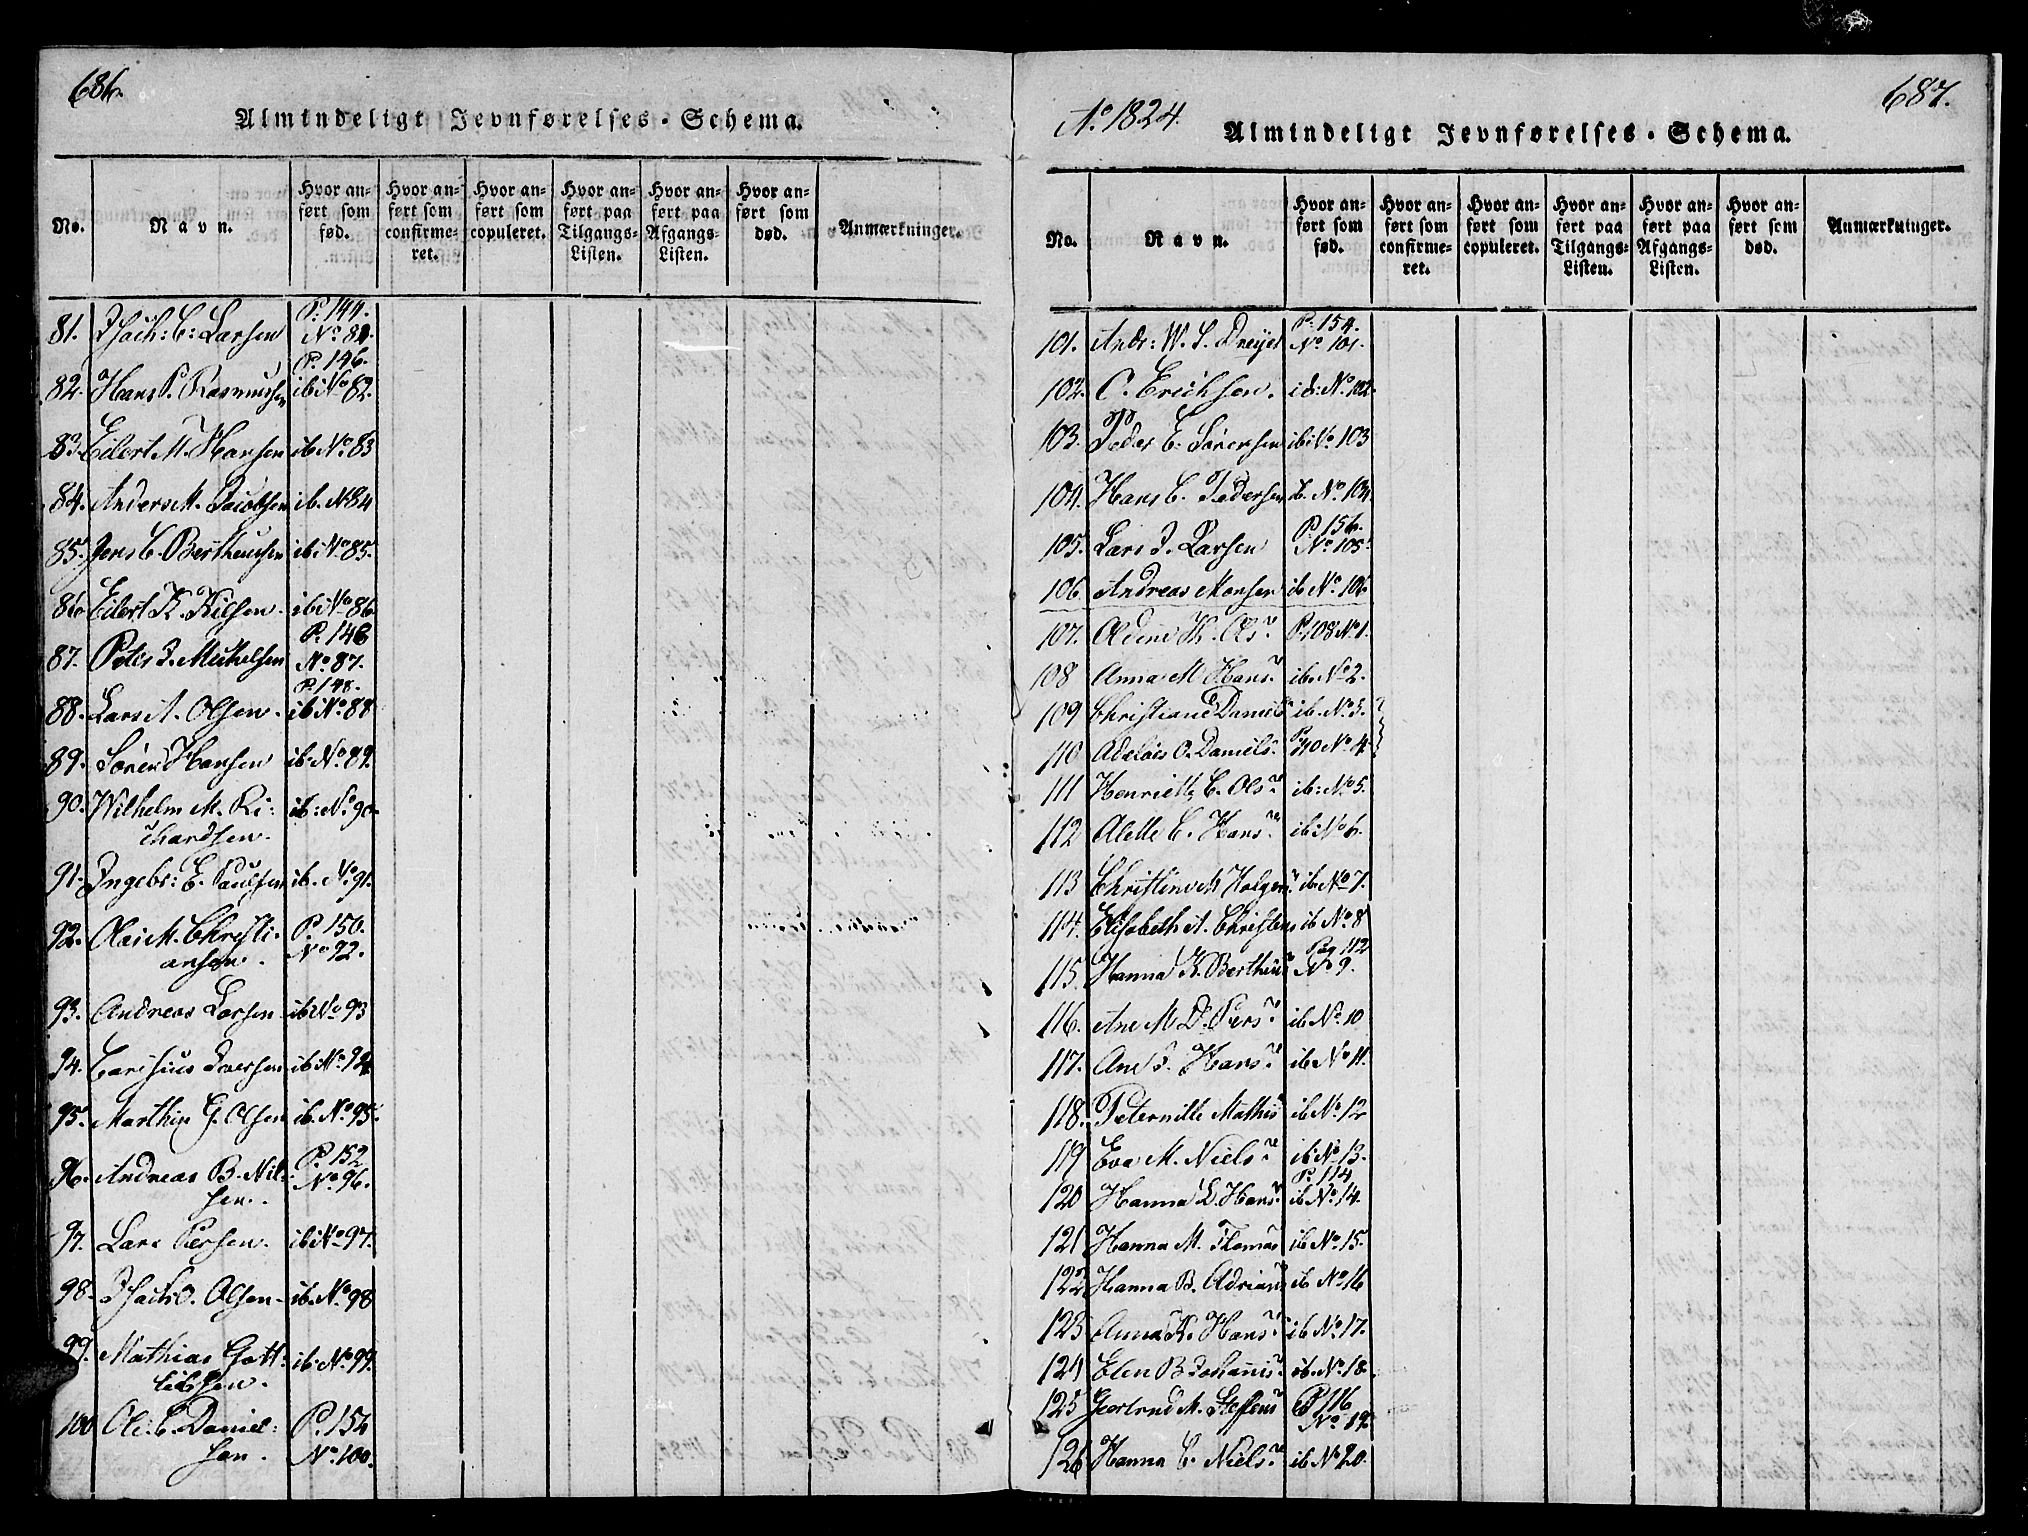 686.
Almindeligt Jevnførelses-Schema.
No. Navn. Hvor anført som født. Hvor anført som confirmeret. Hvor anført som copuleret. Hvor anført paa Tilgangs-Listen. Hvor anført paa Afgangs-Listen. Hvor anført som død. Anmærkninger.
81. Isach: C: Larsen P. 144. No. 81.
P. 146.
82. Hans P. Rasmussen ib: No 82.
83. Eilert M. Hansen ib. No. 83
84. Anders M. Jacobsen ib. No 84
85. Jens C. Bertheussen ib: No 85.
86 Eilert K. Kilsen ib: No 86
87. Peder J. Mickelsen P. 146 No. 87.
P. 148.
88. Lars A. Olsen. ib No. 88
89. Søren Hansen ib. No 89.
90. Wilhelm M. Ri: ib: No. 90.
chardsen.
91. Ingebr: E. Paulsen ib. No. 91.
92. Olai M. Christi- P. 150.
ansen. No 92.
93. Andreas Larsen ib. No 93
94. Carisius Iversen ib. No. 94
95. Marthin G. Olsen ib. No. 95.
96. Andreas B. Niel- P. 152
sen. No. 96.
97. Lars Persen. ib: No 97.
98. Isach O. Olsen ib. No 98
99. Mathias Gott: ib. No. 99.
liebsen.
100 Ole: C. Daniel- P. 154
sen. No. 100.
687.
Ao. 1824.
Almindeligt Jevnførelses-Schema.
No. Navn. Hvor anført som fød. Hvor anført som confirmeret. Hvor anført som copuleret. Hvor anført paa Tilgangs-Listen. Hvor anført paa Afgangs-Listen. Hvor anført som død. Anmærkninger.
101. Andr: W. S. Dreyer P. 154. No. 101.
102. O. Erichsen. id: No. 102.
103. Peder E. Sørensen ib: No. 103
104. Hans C. Pedersen ib. No. 104
105. Lars J. Larsen P. 156. No. 105.
106 Andreas Monsen ib No. 106
107. Oldine H. Olsr. P. 108 No 1.
108 Anna M Hansr. ib. No 2.
109 Christiane Daniels ib. No. 3.
110 Adelois O. Daniels. P. 110 No. 4.
111 Henriette C. Olsr. ib: No 5.
112 Alette C. Hansr. ib: No 6.
113 Christine M Holgers ib: No 7.
114. Elisabeth A. Christens ib No. 8
115. Hanna K. Bertheus Pag 112 No 9.
116. Ane M D. Persr. ib No. 10
117. Ane J. Hansr. ib No 11.
118. Peternille Mathis ib No. 12
119 Eva M. Nielsr. ib: No. 13.
P. 114
120 Hanna L. Hansr. ib No. 14.
121 Hanna M. Thomas ib No. 15.
122 Hanna B. Adrians ib No. 16
123 Anna K. Hansr. ib No. 17.
124 Elen B Johanisr. ib. No. 18.
125 Gjertrud M. Steffens P. 116
No. 19.
126 Hanna C. Nielsr. ib No 20.